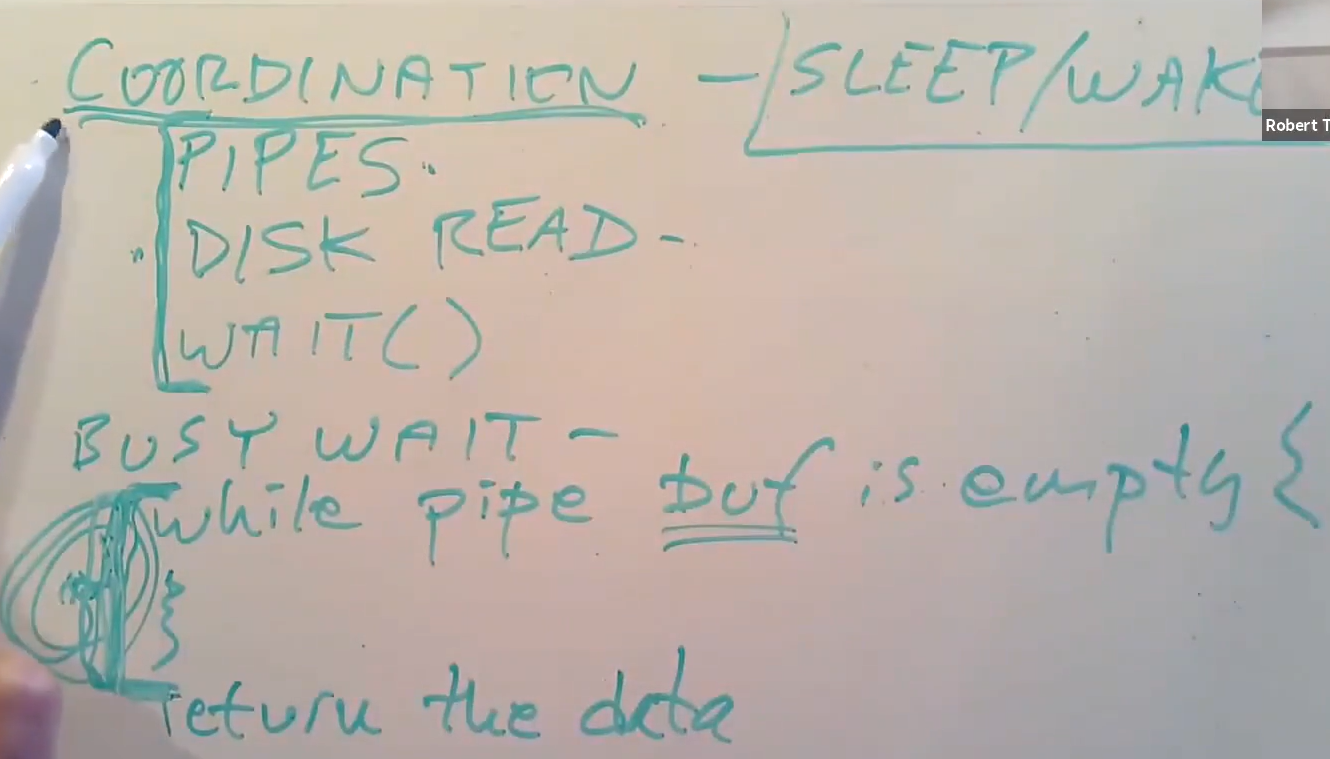 COORDINATION - SLEEP/WAKE
Robert T
PIPES
DISK READ -
WAIT()
BUSY WAIT -
while pipe buf is empty {
}
return the data